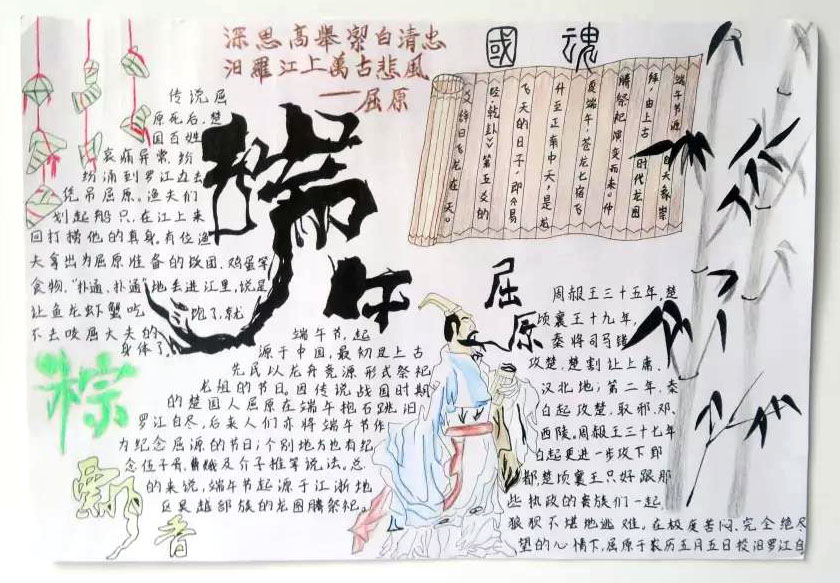 深思高舉潔白清忠
汨羅江上萬古悲風
——屈原
國魂
端午节源自天象崇
拜,由上古时代龙图
腾祭祀演变而来。仲
夏端午,苍龙七宿飞
升至正南中天,是龙
飞天的日子,即《易
经·乾卦》第五爻的
爻辞曰飞龙在天。
传说屈
原死后,楚
国百姓
哀痛异常,纷
纷涌到罗江边去
凭吊屈原。渔夫们
划起船只,在江上来
回打捞他的真身。有位渔
夫拿出为屈原准备的饭团、鸡蛋等
食物,“扑通、扑通”地丢进江里,说是
让鱼龙虾蟹吃饱了,就
不去咬屈大夫的
身体了。
端午
粽
飘香
端午节,起
源于中国,最初是上古
先民以龙舟竞源形式祭祀
龙祖的节日。因传说战国时期
的楚国人屈原在端午抱石跳汨
罗江自尽,后来人们亦将端午节作
为纪念屈源的节日;个别地方也有纪
念伍子胥、曹娥及介子推等说法。总
的来说,端午节起源于江浙地
区吴越部族的龙图腾祭祀。
屈原
周赧王三十五年,楚
顷襄王十九年,
秦将司马错
攻楚,楚割让上庸、
汉北地;第二年,秦
白起攻楚,取邪、邓、
西陵。周赧王三十七年
白起更进一步攻下郢
都楚顷襄王只好跟那
些执政的贵族们一起,
狼狈不堪地逃难。在极度苦闷、完全绝
望的心情下,屈原于农历五月五日投汨罗江自